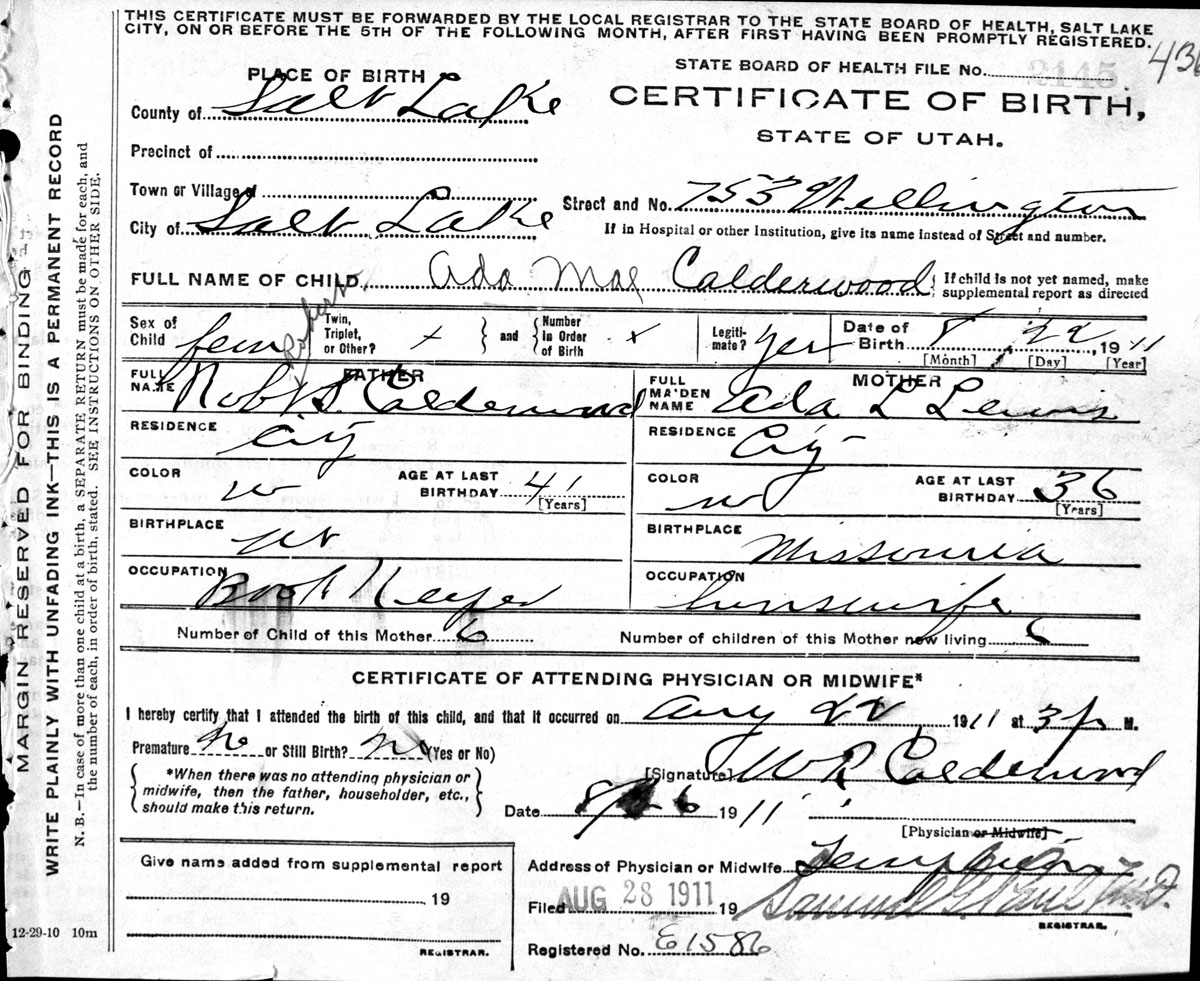 THIS CERTIFICATE MUST BE FORWARDED BY THE LOCAL REGISTRAR TO THE STATE BOARD OF HEALTH, SALT LAKE
CITY, ON OR BEFORE THE 5TH OF THE FOLLOWING MONTH, AFTER FIRST HAVING BEEN PROMPTLY REGISTERED.
STATE BOARD OF HEALTH FILE No. 2145 436
PLACE OF BIRTH
CERTIFICATE OF BIRTH,
STATE OF UTAH.
County of Salt Lake
Precinct of
Town or Village of
Street and No. 753 Wellington
City of Salt Lake
If in Hospital or other Institution, give its name instead of Street and number.
FULL NAME OF CHILD Ada Mae Calderwood
If child is not yet named, make
supplemental report as directed
Sex of Child fem
Robert
Twin, Triplet, or Other? x
and
Number in Order of Birth x
Legitimate? yes
Date of Birth 8 22, 1911
[Month] [Day] [Year]
FATHER
FULL NAME Robt S. Calderwood
MOTHER
FULL MAIDEN NAME Ada L Lewis
RESIDENCE City
RESIDENCE City
COLOR w
AGE AT LAST BIRTHDAY 41
[Years]
COLOR w
AGE AT LAST BIRTHDAY 36
[Years]
BIRTHPLACE Ut
BIRTHPLACE Missouria
OCCUPATION Book Keeper
OCCUPATION housewife
Number of Child of this Mother 6
Number of children of this Mother now living 6
CERTIFICATE OF ATTENDING PHYSICIAN OR MIDWIFE*
I hereby certify that I attended the birth of this child, and that it occurred on Aug 22, 1911 at 3 p M.
Premature No or Still Birth? No (Yes or No)
*When there was no attending physician or
midwife, then the father, householder, etc.,
should make this return.
[Signature] W R Calderwood
Date 8/26 1911
[Physician or Midwife]
Give name added from supplemental report
19
REGISTRAR.
Address of Physician or Midwife
Filed AUG 28 1911 19 Samuel G. Paul M.D.
REGISTRAR.
Registered No. E1586
12-29-10 10m
MARGIN RESERVED FOR BINDING
WRITE PLAINLY WITH UNFADING INK—THIS IS A PERMANENT RECORD
N. B.—In case of more than one child at a birth, a SEPARATE RETURN must be made for each, and
the number of each, in order of birth, stated. SEE INSTRUCTIONS ON OTHER SIDE.